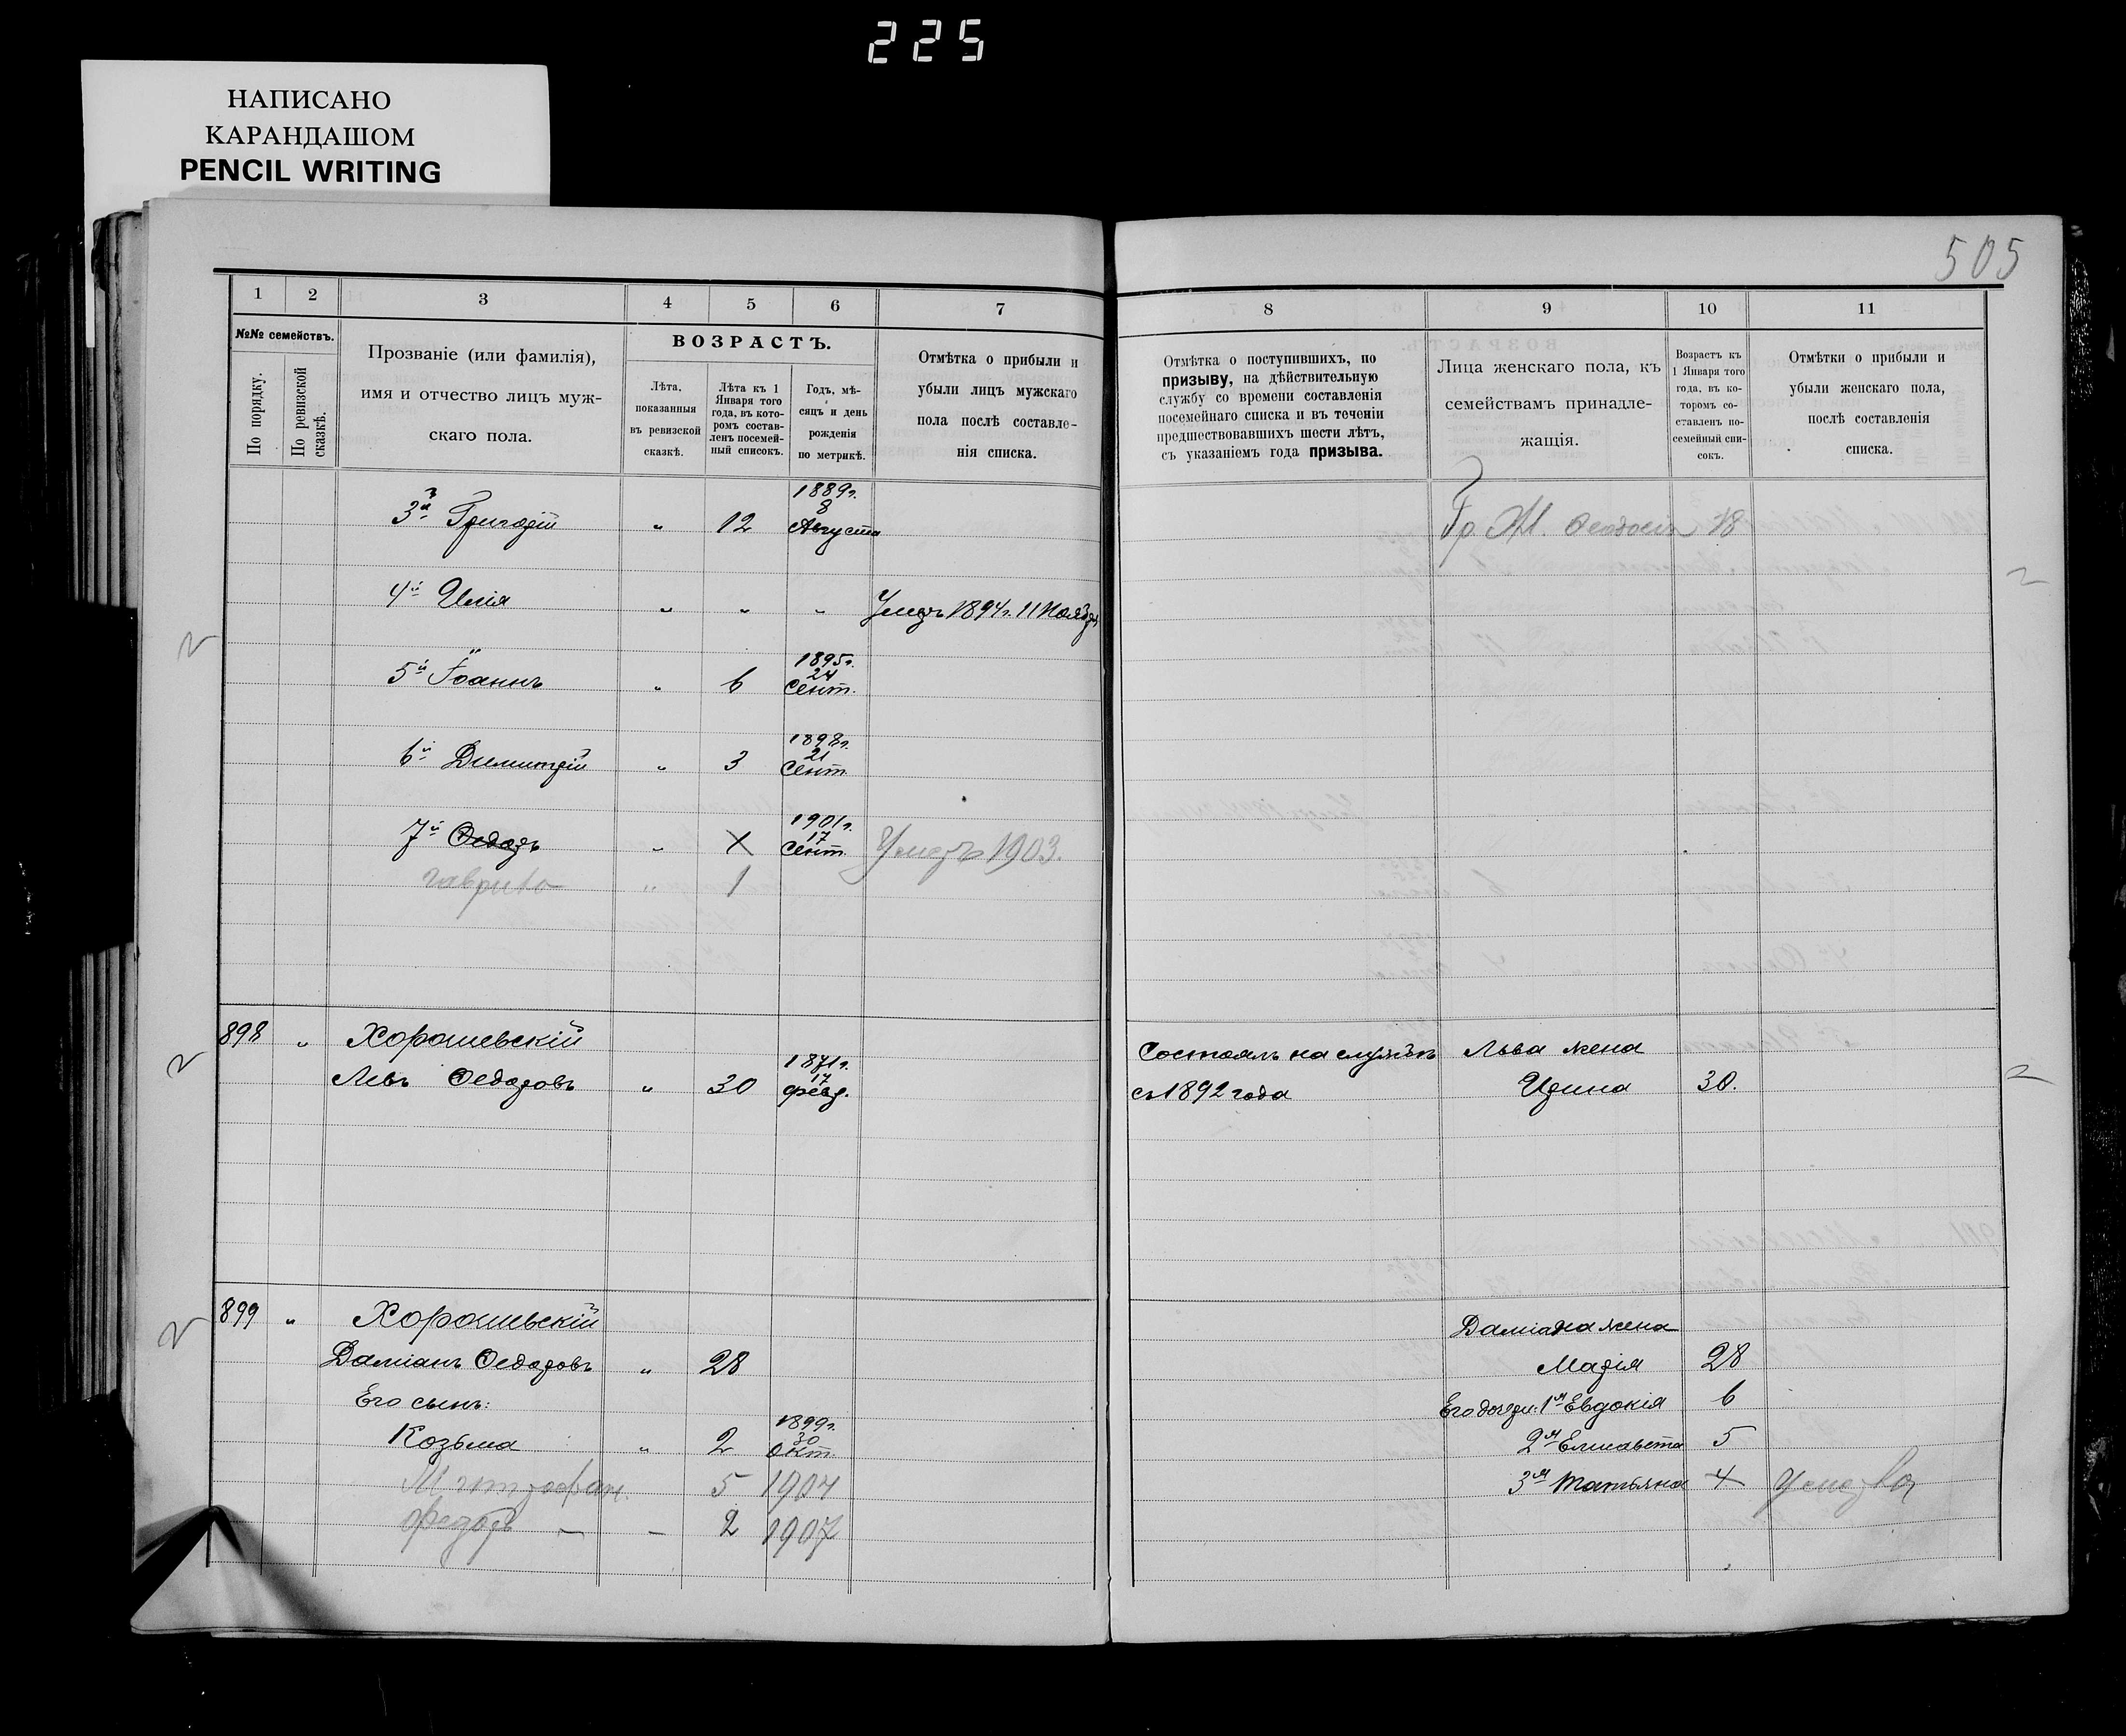 225
НАПИСАНО
КАРАНДАШОМ
PENCIL WRITING
505
1 2 3 4 5 6 7
№№ семействъ.
По порядку.
По ревизской сказкѣ.
Прозваніе (или фамилія),
имя и отчество лицъ муж-
скаго пола.
ВОЗРАСТЪ.
Лѣта,
показанныя
въ ревизской
сказкѣ.
Лѣта къ 1
Января того
года, въ кото-
ромъ состав-
ленъ посемей-
ный списокъ.
Годъ, мѣ-
сяцъ и день
рожденія
по метрикѣ.
Отмѣтка о прибыли и
убыли лицъ мужскаго
пола послѣ составле-
нія списка.
8 9 10 11
Отмѣтка о поступившихъ, по
призыву, на дѣйствительную
службу со времени составленія
посемейнаго списка и въ теченіи
предшествовавшихъ шести лѣтъ,
съ указаніемъ года призыва.
Лица женскаго пола, къ
семействамъ принадле-
жащія.
Возрастъ къ
1 Января того
года, въ ко-
торомъ со-
ставленъ по-
семейный спи-
сокъ.
Отмѣтки о прибыли и
убыли женскаго пола,
послѣ составленія
списка.
1889г.
8
3й Григорій " 12 Августа
Гр. Ж. Ѳеодосія 18
4й Илія " " " Умеръ 1894г. 11 Ноября
1895г.
24
5й Іоаннъ " 6 Сент.
1898г.
21
6й Димитрій " 3 Сент.
1901г.
17
7й Ѳедоръ " Х Сент. Умеръ 1903.
Гаврило " 1
898 " Хорошевскій
1871г.
17
Левъ Ѳедоровъ " 30 Февр.
Состоялъ на службѣ
съ 1892 года
Льва жена
Ирина 30.
899 " Хорошевскій
Даміанъ Ѳедоровъ " 28
Его сынъ:
1899г.
30
Козьма " 2 Окт.
Митрофан. 5 1904
Федоръ — — 2 1907
Даміана жена
Марія 28
Его дочери: 1я Евдокія 6
2я Елисавета 5
3я Татьяна 4 Умерла